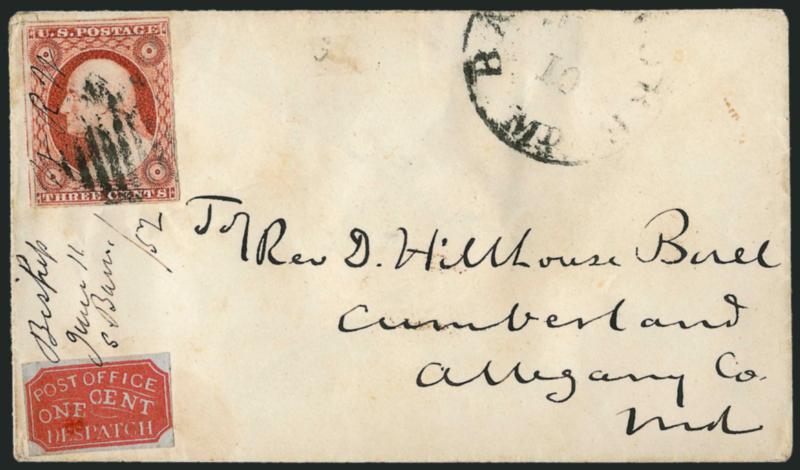 U.S. POSTAGE
THREE CENTS
BA
10
MD
To/ Rev D. Hillhouse Buel
Cumberland
Allegany Co.
Md
Bishop
June 11
/52
POST OFFICE
ONE CENT
DESPATCH